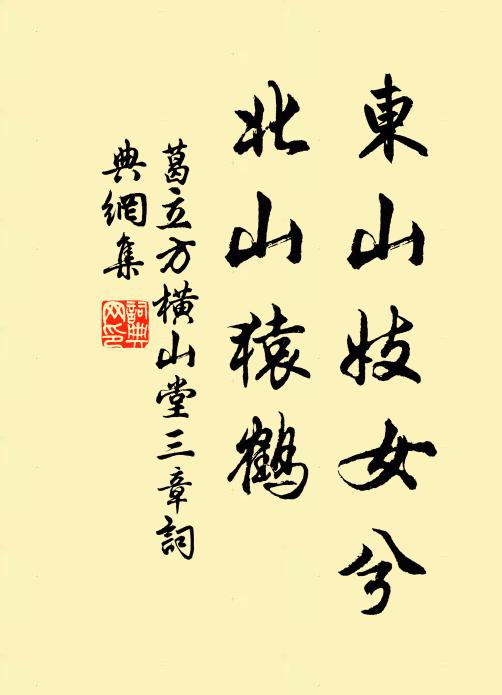 東山妓女兮
北山猿鶴
葛立方橫山堂三章詞
典網集
詞典
网印